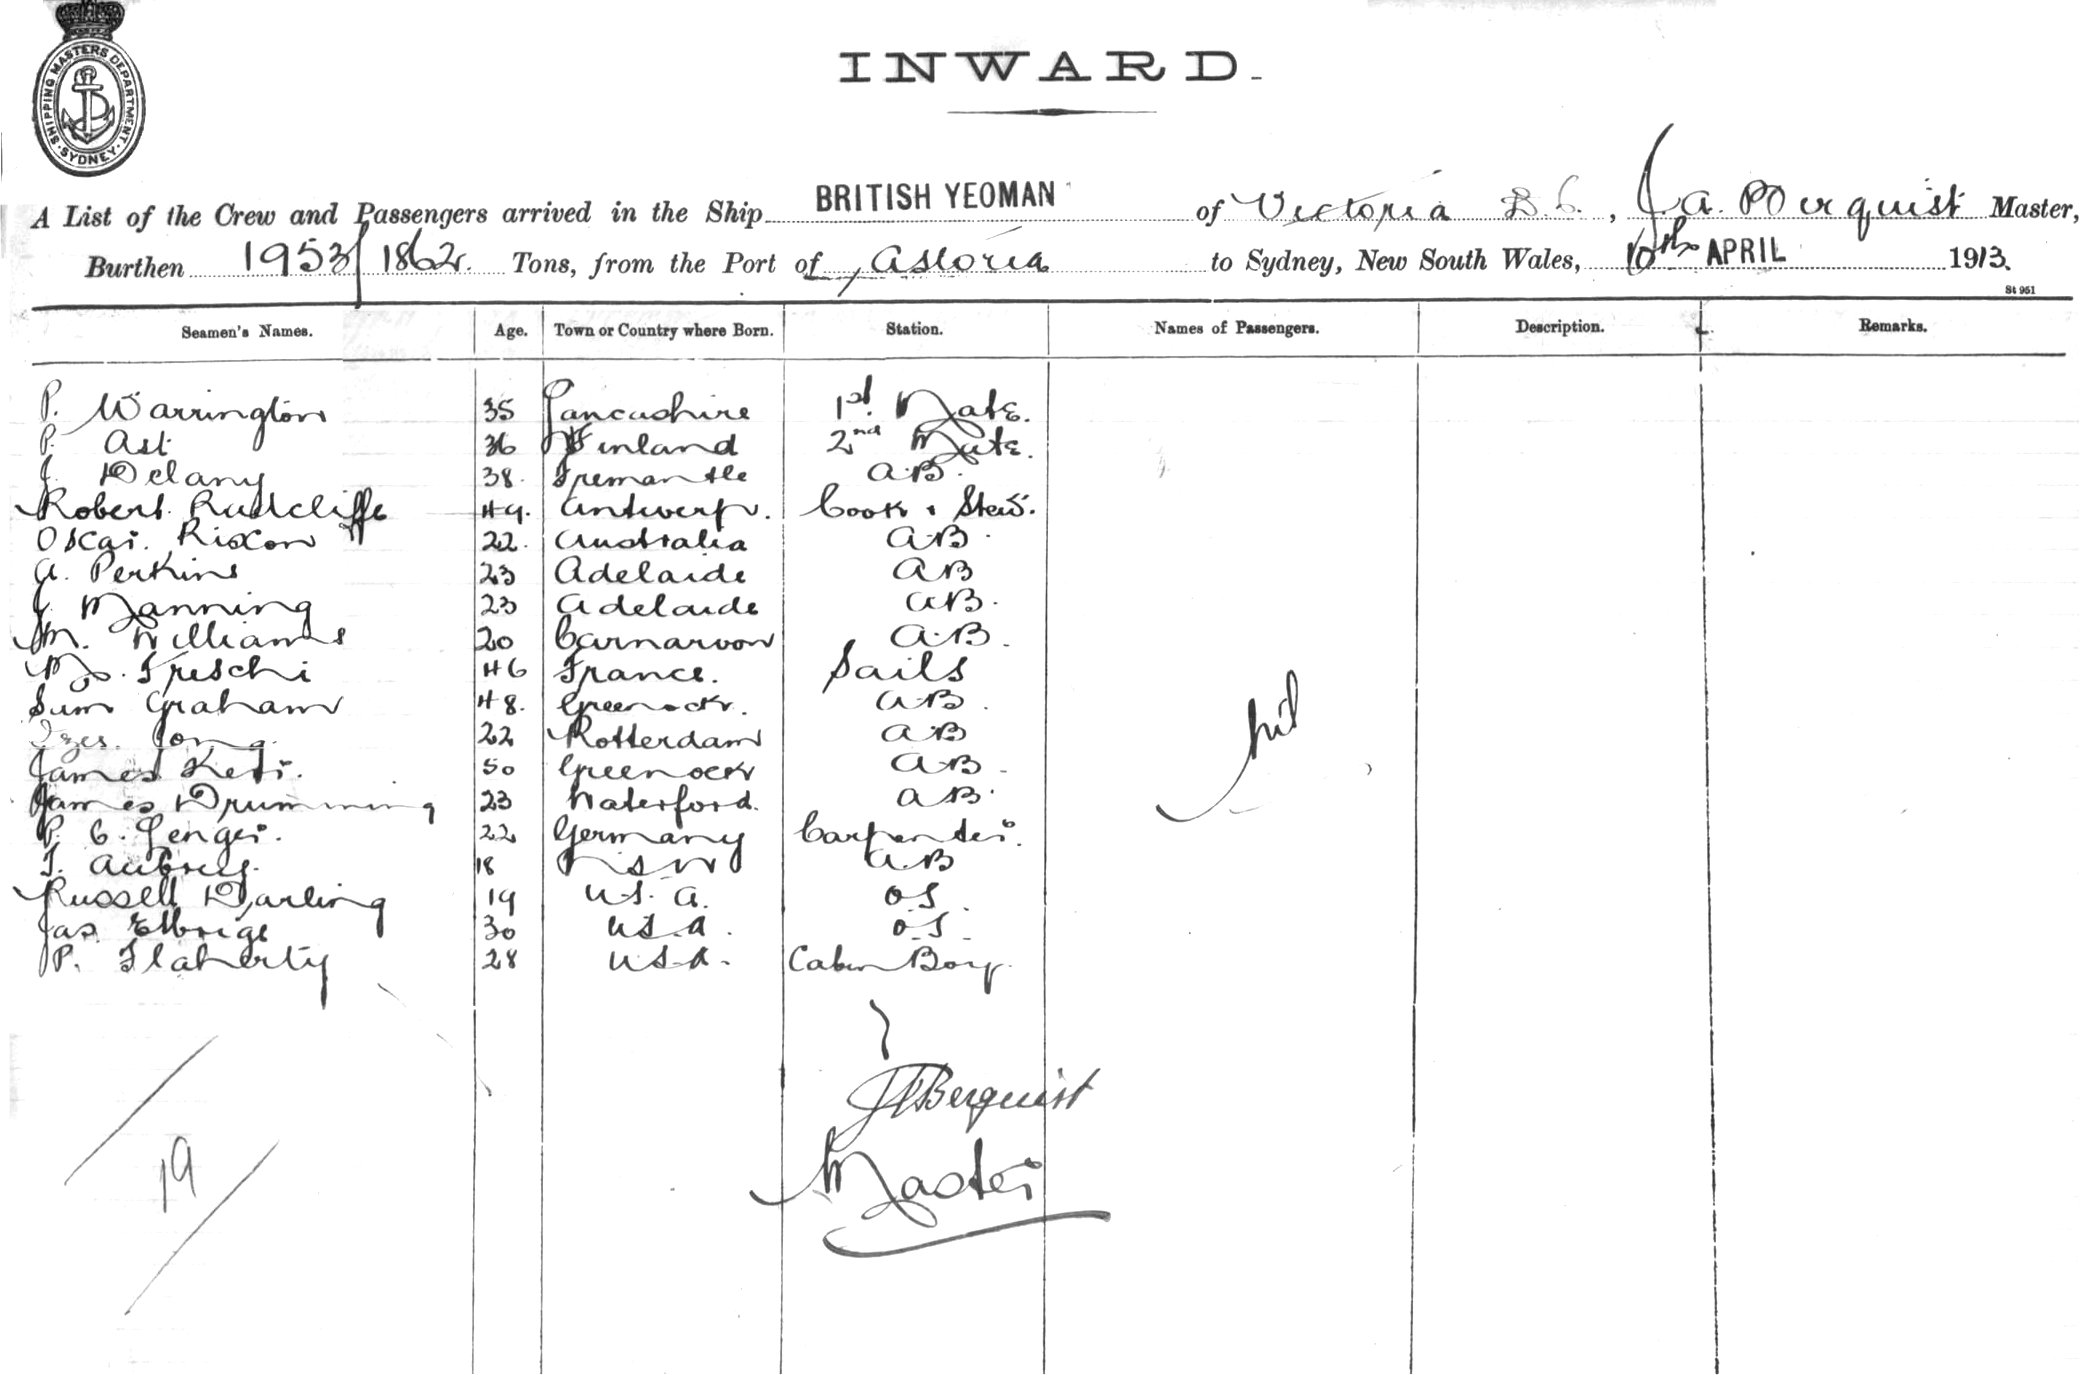 SHIPPING MASTERS DEPARTMENT. SYDNEY.
INWARD.
A List of the Crew and Passengers arrived in the Ship BRITISH YEOMAN of Victoria B.C., J. A. Berquist Master,
Burthen 1953/1862 Tons, from the Port of Astoria to Sydney, New South Wales, 10th APRIL 1913.
St 951
Seamen's Names. Age. Town or Country where Born. Station. Names of Passengers. Description. Remarks.
P. Warrington 35 Lancashire 1st Mate.
P. Ast 36 Finland 2nd Mate.
J. Delany 38. Fremantle A.B.
Robert Radcliffe 49. Antwerp. Cook & Stew.
Oscar Rixon 22. Australia A.B.
A. Perkins 23 Adelaide AB
J. Manning 23 Adelaide AB.
M. Williams 20 Carnarvon A.B.
M. Freschi 46 France. Sails
Sum Graham 48. Greenock. AB.
22 Rotterdam AB
James 50 Greenock AB.
James Drumming 23 Waterford. AB.
P. C. Genger. 22 Germany Carpenter.
T. Aubrey. 18 NSW A.B
Russell Darling 19 U.S.A. OS.
Jas. 30 USA. OS.
P. Flaherty 28 U.S.A. Cabin Boy.
nil
JABerquist
Master
19